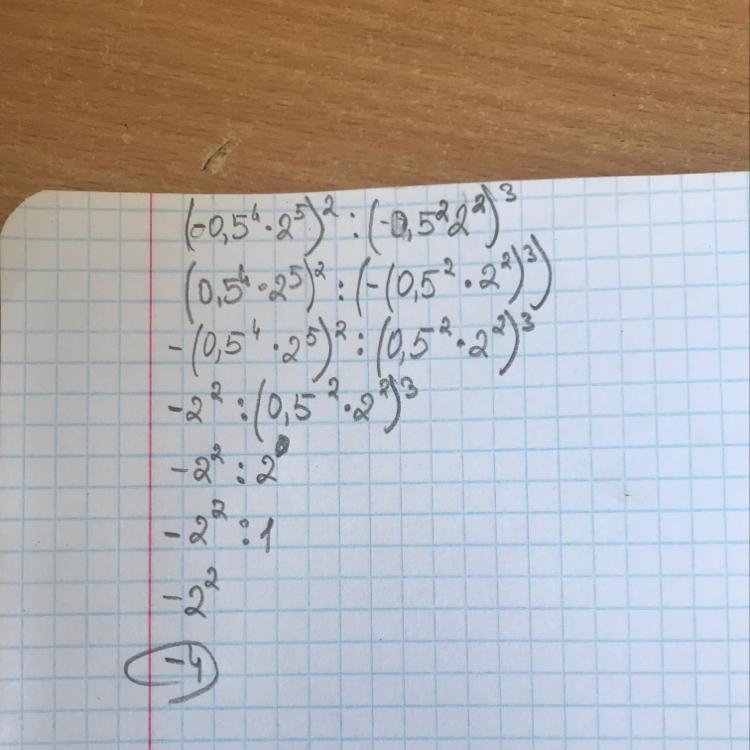 (-0,5⁴·2⁵)²:(-0,5²2²)³
(0,5⁴·2⁵)²:(-(0,5²·2²)³)
-(0,5⁴·2⁵)²:(0,5²·2²)³
-2²:(0,5²·2²)³
-2²:2⁰
-2²:1
-2²
-4